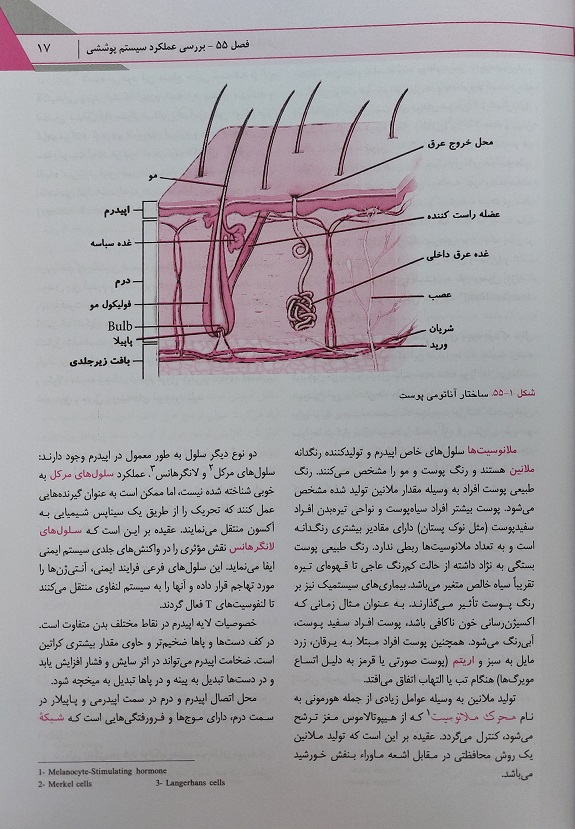 فصل ۵۵ - بررسی عملکرد سیستم پوششی
۱۷
محل خروج عرق
عضله راست کننده
غده عرق داخلی
عصب
شریان
ورید
مو
اپیدرم
غده سباسه
درم
فولیکول مو
Bulb
پاپیلا
بافت زیرجلدی
شکل ۱-۵۵. ساختار آناتومی پوست
ملانوسیت‌ها سلول‌های خاص اپیدرم و تولیدکننده رنگدانه
ملانین هستند و رنگ پوست و مو را مشخص می‌کنند. رنگ
طبیعی پوست افراد به وسیله مقدار ملانین تولید شده مشخص
می‌شود. پوست بیشتر افراد سیاه‌پوست و نواحی تیره‌بدن افراد
سفیدپوست (مثل نوک پستان) دارای مقادیر بیشتری رنگدانه
است و به تعداد ملانوسیت‌ها ربطی ندارد. رنگ طبیعی پوست
بستگی به نژاد داشته از حالت کم‌رنگ عاجی تا قهوه‌ای تیره
تقریباً سیاه خالص متغیر می‌باشد. بیماری‌های سیستمیک نیز بر
رنگ پوست تأثیر می‌گذارند. به عنوان مثال زمانی که
اکسیژن‌رسانی خون ناکافی باشد، پوست افراد سفید پوست،
آبی‌رنگ می‌شود. همچنین پوست افراد مبتلا به یرقان، زرد
مایل به سبز و اریتم (پوست صورتی یا قرمز به دلیل اتساع
مویرگ‌ها) هنگام تب یا التهاب اتفاق می‌افتد.
تولید ملانین به وسیله عوامل زیادی از جمله هورمونی به
نام محرک ملانوسیت۱ که از هیپوتالاموس مغز ترشح
می‌شود، کنترل می‌گردد. عقیده بر این است که تولید ملانین
یک روش محافظتی در مقابل اشعه ماوراء بنفش خورشید
می‌باشد.
دو نوع دیگر سلول به طور معمول در اپیدرم وجود دارند:
سلول‌های مرکل۲ و لانگرهانس۳. عملکرد سلول‌های مرکل به
خوبی شناخته شده نیست، اما ممکن است به عنوان گیرنده‌هایی
عمل کنند که تحریک را از طریق یک سیناپس شیمیایی به
آکسون منتقل می‌نمایند. عقیده بر این است که سلول‌های
لانگرهانس نقش مؤثری را در واکنش‌های جلدی سیستم ایمنی
ایفا می‌نماید. این سلول‌های فرعی فرایند ایمنی، آنتی‌ژن‌ها را
مورد تهاجم قرار داده و آنها را به سیستم لنفاوی منتقل می‌کنند
تا لنفوسیت‌های T فعال گردند.
خصوصیات لایه اپیدرم در نقاط مختلف بدن متفاوت است.
در کف دست‌ها و پاها ضخیم‌تر و حاوی مقدار بیشتری کراتین
است. ضخامت اپیدرم می‌تواند در اثر سایش و فشار افزایش یابد
و در دست‌ها تبدیل به پینه و در پاها تبدیل به میخچه شود.
محل اتصال اپیدرم و درم در سمت اپیدرمی و پاپیلار در
سمت درم، دارای موج‌ها و فرورفتگی‌هایی است که شبکهٔ
1- Melanocyte-Stimulating hormone
2- Merkel cells
3- Langerhans cells